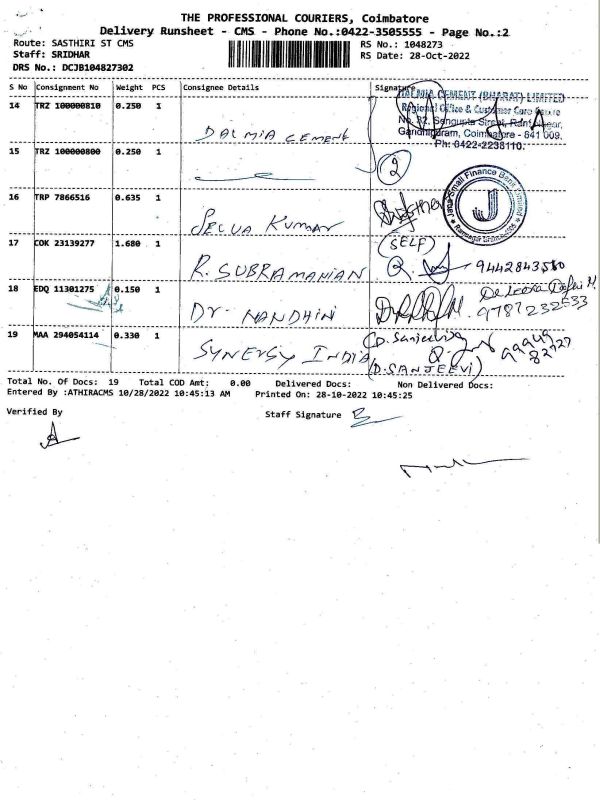 THE PROFESSIONAL COURIERS, Coimbatore
Delivery Runsheet - CMS - Phone No.:0422-3505555 - Page No.:2
Route: SASTHIRI ST CMS
Staff: SRIDHAR
DRS No.: DCJB104827302
RS No.: 1048273
RS Date: 28-Oct-2022
S No Consignment No Weight PCS Consignee Details Signature
DALMIA CEMENT (BHARAT) LIMITED
Regional Office & Customer Care Centre
14 TRZ 100000810 0.250 1 DALMIA CEMENT
Gandhipuram, Coimbatore - 641 009.
Ph: 0422-2238110.
15 TRZ 100000800 0.250 1 2
Jana Small Finance Bank Limited
J
16 TRP 7866516 0.635 1 SELVA KUMAR
(SELF)
17 COK 23139277 1.680 1 R. SUBRAMANIAN 9442843580
18 EDQ 11301275 0.150 1 Dr. NANDHIN
9787232533
19 MAA 294054114 0.330 1 SYNERGY INDIA D. Sanjeevi
99949
82727
(D.SANJEEVI)
Total No. Of Docs: 19 Total COD Amt: 0.00 Delivered Docs: Non Delivered Docs:
Entered By :ATHIRACMS 10/28/2022 10:45:13 AM Printed On: 28-10-2022 10:45:25
Verified By Staff Signature